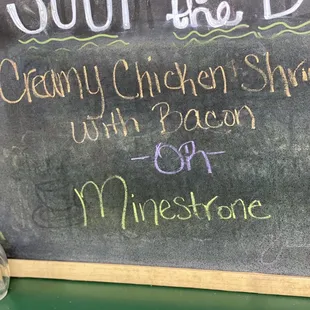 Soup of the D
Creamy Chicken + Shri
with Bacon
-OR-
Minestrone